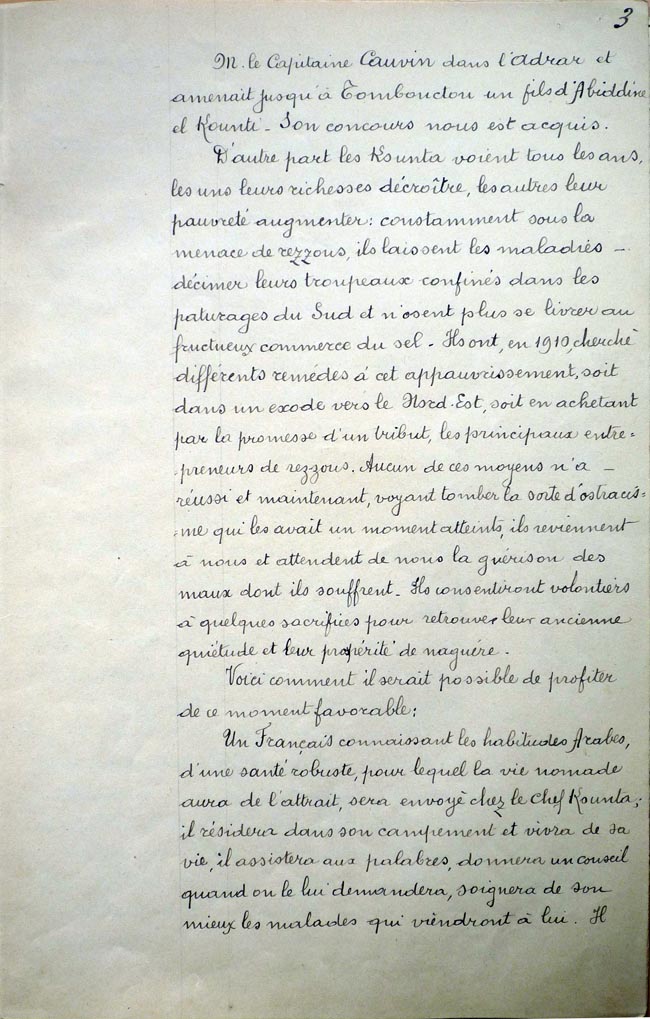 3
M. le Capitaine Cauvin dans l'Adrar et
amenait jusqu'à Tombouctou un fils d'Abiddine
el Kounti - Son concours nous est acquis.
D'autre part les Kounta voient tous les ans,
les uns leurs richesses décroître, les autres leur
pauvreté augmenter : constamment sous la
menace de rezzous, ils laissent les maladies -
décimer leurs troupeaux confinés dans les
paturages du Sud et n'osent plus se livrer au
fructueux commerce du sel - Ils ont, en 1910, cherché
différents remédes à cet appauvrissement, soit
dans un exode vers le Nord-Est, soit en achetant
par la promesse d'un tribut, les principaux entre=
=preneurs de rezzous. Aucun de ces moyens n'a -
réussi et maintenant, voyant tomber la sorte d'ostracis=
=me qui les avait un moment atteints, ils reviennent
à nous et attendent de nous la guérison des
maux dont ils souffrent - Ils consentiront volontiers
à quelques sacrifices pour retrouver leur ancienne
quiétude et leur prospérité de naguére.
Voici comment il serait possible de profiter
de ce moment favorable :
Un Français connaissant les habitudes Arabes,
d'une santé robuste, pour lequel la vie nomade
aura de l'attrait, sera envoyé chez le Chef Kounta ;
il résidera dans son campement et vivra de sa
vie, il assistera aux palabres, donnera un conseil
quand on le lui demandera, soignera de son
mieux les malades qui viendront à lui. Il